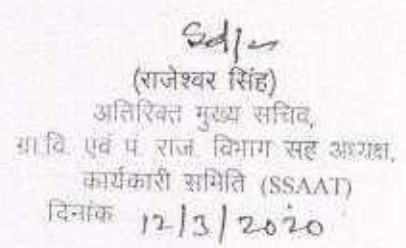 Sd/-
(राजेश्वर सिंह)
अतिरिक्त मुख्य सचिव,
ग्रा.वि. एवं पं. राज. विभाग सह अध्यक्ष,
कार्यकारी समिति (SSAAT)
दिनांक 12/3/2020